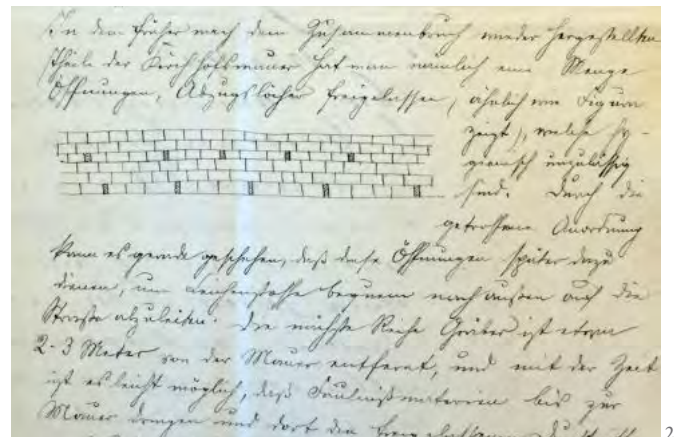 In dem früher nach dem Zusammenbruch wieder hergestellten
Theile der Kirchhofsmauer hat man nämlich eine Menge
Öffnungen, Abzugslöcher freigelassen, (ähnlich wie Figura
zeigt), welche hy-
gienisch unzulässig
sind. Durch die
getroffene Anordnung
kann es gerade geschehen, daß diese Öffnungen später dazu
dienen, um Leichenstoffe bequem nach außen auf die
Straße abzuleiten. Die nächste Reihe Gräber ist etwa
2-3 Meter von der Mauer entfernt, und mit der Zeit
ist es leicht möglich, daß Fäulnißmaterien bis zur
Mauer dringen und dort die freigelassenen
2